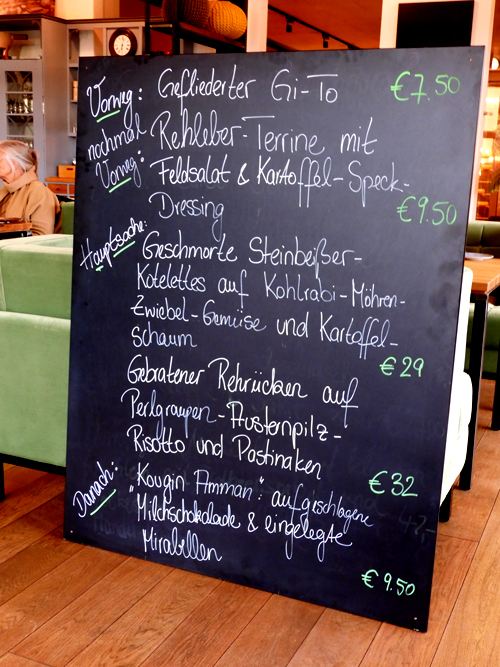 Vorweg: Gefliederter Gi-To €7.50
nochmal Vorweg: Rehleber-Terrine mit
Feldsalat & Kartoffel-Speck-
Dressing €9.50
Hauptsache: Geschmorte Steinbeißer-
Kotelettes auf Kohlrabi-Möhren-
Zwiebel-Gemüse und Kartoffel-
schaum €29
Gebratener Rehrücken auf
Perlgraupen-Austernpilz-
Risotto und Pastinaken €32
Danach: "Kougin Amman": aufgeschlagene
Milchschokolade & eingelegte
Mirabellen €9.50